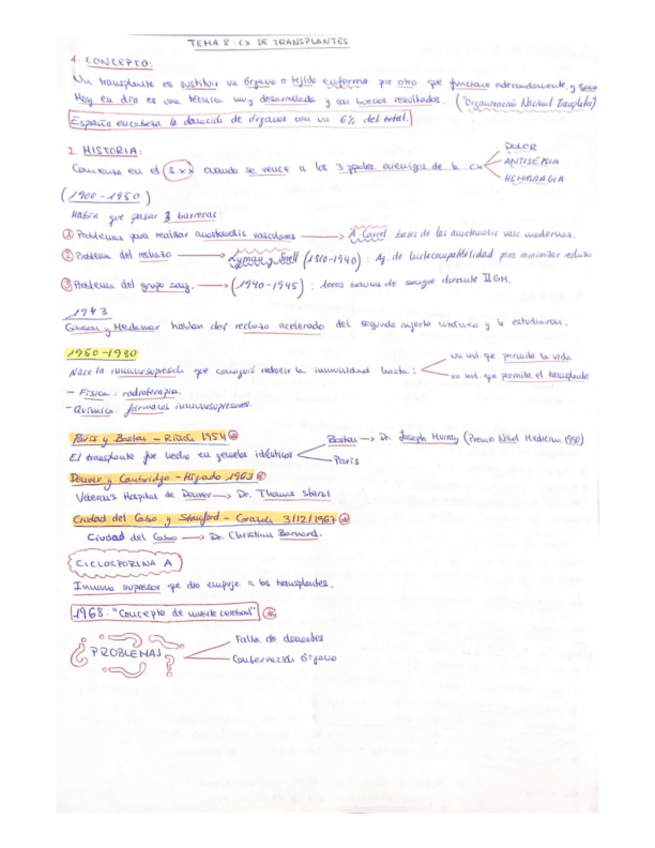 TEMA 8: CX DE TRANSPLANTES
1. CONCEPTO:
Un transplante es sustituir un órgano o tejido enfermo por otro que funcione adecuadamente, y sano
Hoy en día es una técnica muy desarrollada y con buenos resultados. ("Organización Nacional Trasplantes)
España encabeza la donación de órganos con un 6% del total.
2. HISTORIA:
Comienza en el S.XX cuando se vence a los 3 grandes enemigos de la cx
DOLOR
ANTISEPSIA
HEMORRAGIA
(1900-1950)
Había que pasar 3 barreras:
① Problemas para realizar anastomosis vasculares → A. Carrel bases de las anastomosis vasc modernas.
② Problema del rechazo → y Snell (1910-1940): Ag. de histocompatibilidad para minimizar rechazo
③ Problema del grupo sang. → (1940-1945): bancos de sangre durante II GM.
1943
Gibson y Medawar hablan del rechazo acelerado del segundo injerto cutáneo y lo estudiaron.
1950-1980
Nace la inmunosupresión que consiguió reducir la inmunidad hasta:
un nivel que permita la vida
un nivel que permita el transplante
- Física: radioterapia.
- Química: fármacos inmunosupresores.
París y Boston - Riñón 1954
El transplante fue hecho en gemelos idénticos
Boston → Dr. Joseph Murray (Premio Nobel Medicina 1990)
París
Denver y Cambridge - Hígado 1963
Veterans Hospital de Denver → Dr. Thomas Starzl
Ciudad del Cabo y Stanford - Corazón 3/12/1967
Ciudad del Cabo → Dr. Christian Barnard.
CICLOSPORINA A
Inmuno supresor que dio empuje a los transplantes.
1968: "Concepto de muerte cerebral"
¿? PROBLEMAS ¿?
Falta de donantes
Conservación órgano